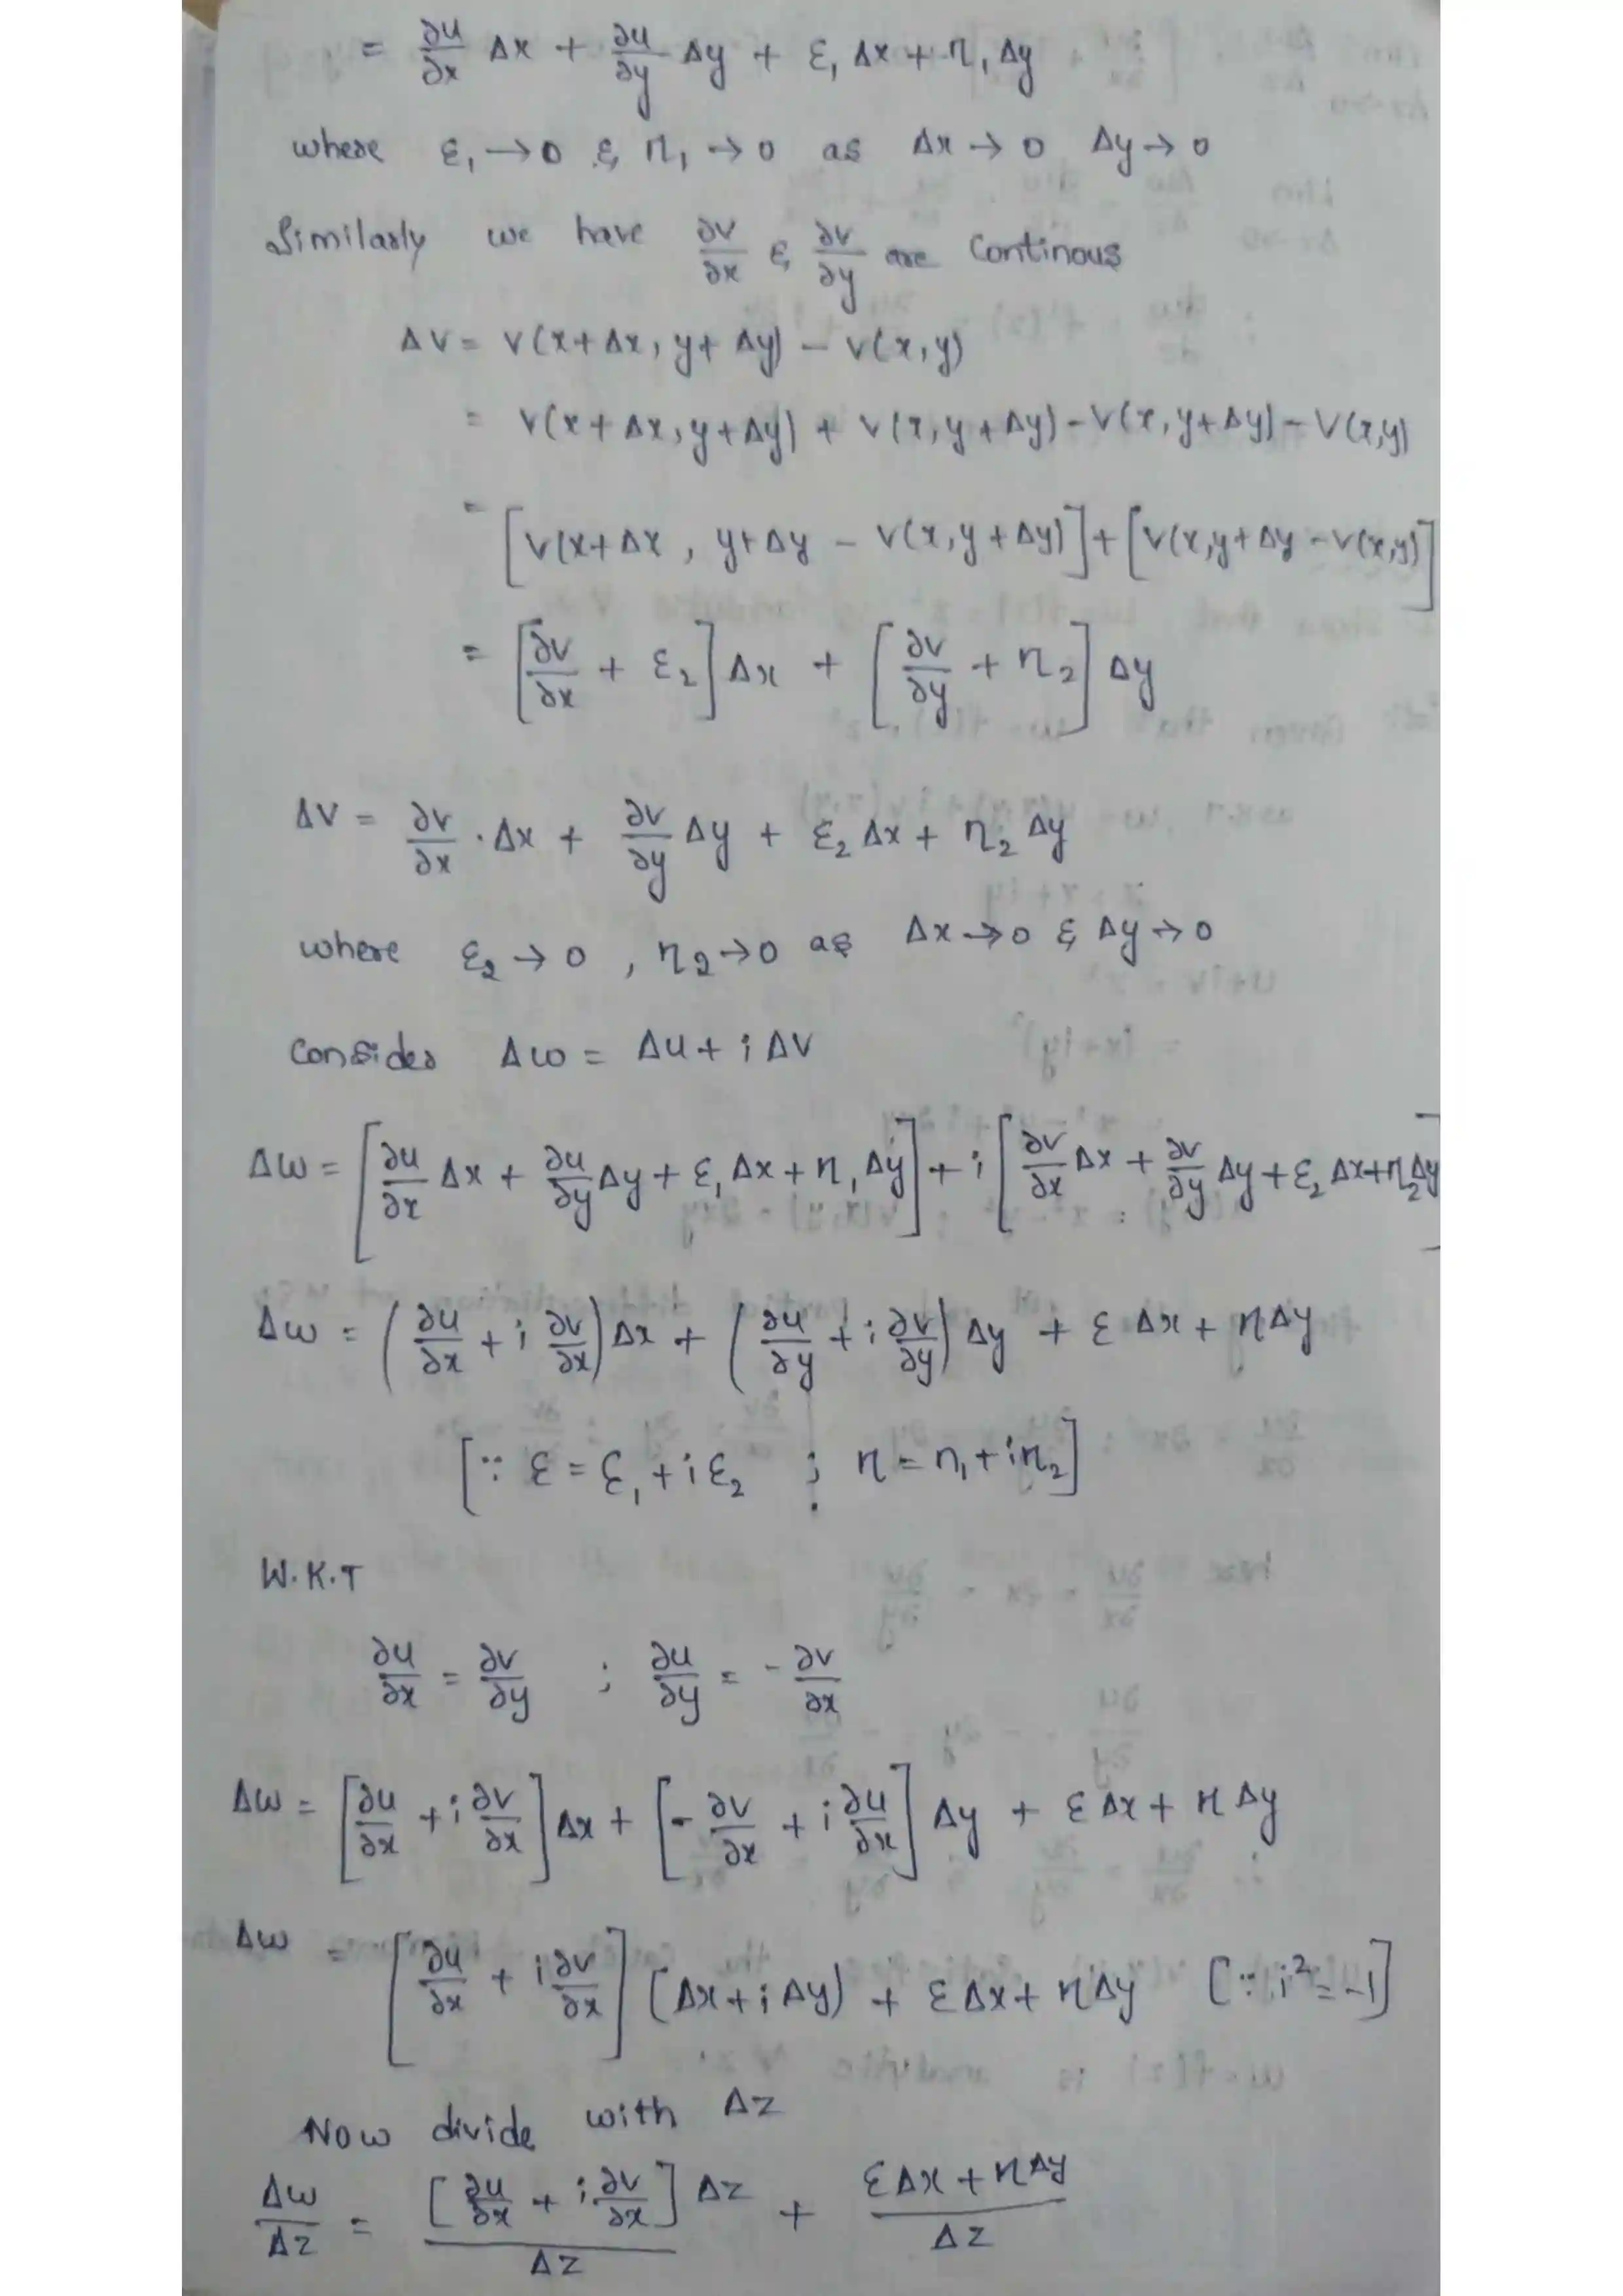 = ∂u/∂x Δx + ∂u/∂y Δy + ε₁ Δx + η₁ Δy
where ε₁ → 0 & η₁ → 0 as Δx → 0 Δy → 0
Similarly we have ∂v/∂x & ∂v/∂y are Continous
Δv = v(x+Δx, y+Δy) − v(x,y)
= v(x+Δx, y+Δy) + v(x, y+Δy) − v(x, y+Δy) − v(x,y)
= [v(x+Δx, y+Δy − v(x, y+Δy)] + [v(x, y+Δy − v(x,y)]
= [∂v/∂x + ε₂] Δx + [∂v/∂y + η₂] Δy
Δv = ∂v/∂x · Δx + ∂v/∂y Δy + ε₂ Δx + η₂ Δy
where ε₂ → 0, η₂ → 0 as Δx → 0 & Δy → 0
Consider Δw = Δu + i Δv
Δw = [∂u/∂x Δx + ∂u/∂y Δy + ε₁ Δx + η₁ Δy] + i [∂v/∂x Δx + ∂v/∂y Δy + ε₂ Δx + η₂ Δy]
Δw = (∂u/∂x + i ∂v/∂x) Δx + (∂u/∂y + i ∂v/∂y) Δy + ε Δx + η Δy
[∵ ε = ε₁ + i ε₂ ; η = η₁ + i η₂]
W.K.T
∂u/∂x = ∂v/∂y ; ∂u/∂y = − ∂v/∂x
Δw = [∂u/∂x + i ∂v/∂x] Δx + [− ∂v/∂x + i ∂u/∂x] Δy + ε Δx + η Δy
Δw = [∂u/∂x + i ∂v/∂x] (Δx + i Δy) + ε Δx + η Δy [∵ i² = −1]
Now divide with Δz
Δw/Δz = [∂u/∂x + i ∂v/∂x] Δz / Δz + (ε Δx + η Δy) / Δz